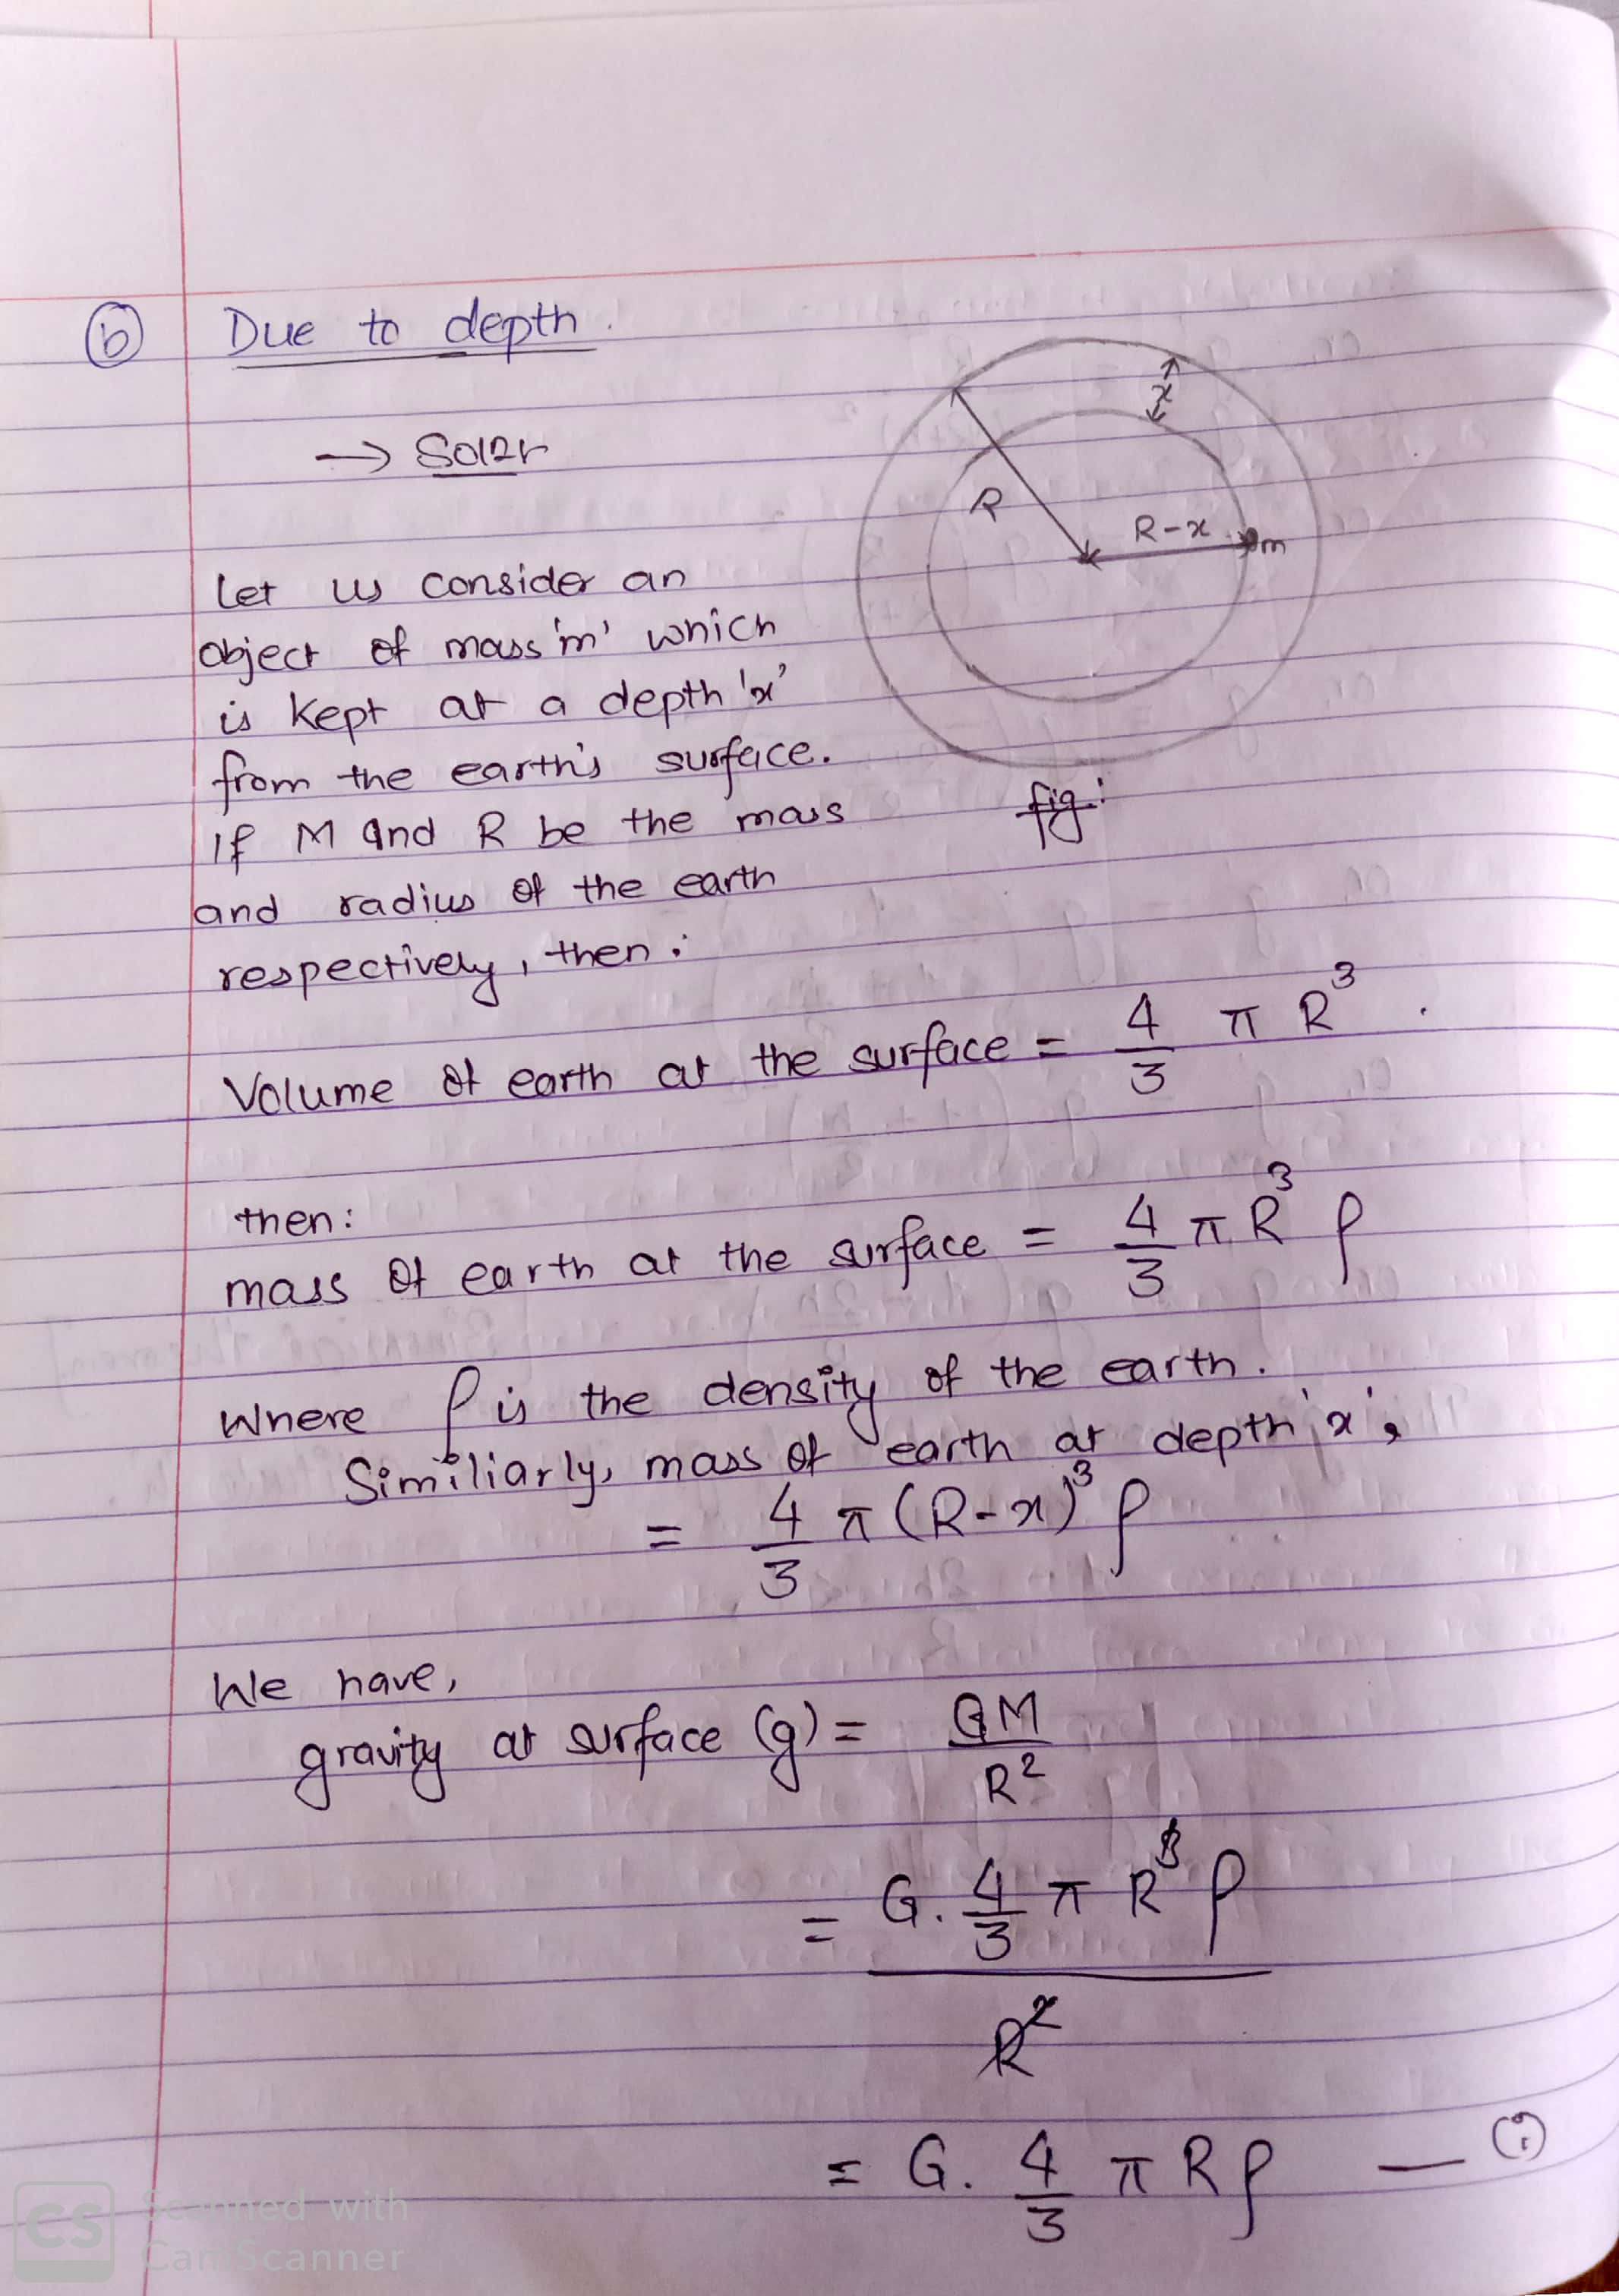 (b) Due to depth.
→ Solⁿ
x
R
R-x
m
Let us consider an
object of mass 'm' which
is kept at a depth 'x'
from the earth's surface.
If M and R be the mass
and radius of the earth
respectively, then:
fig:
Volume of earth at the surface = 4/3 π R³.
then:
mass of earth at the surface = 4/3 π R³ ρ
Where ρ is the density of the earth.
Similiarly, mass of earth at depth 'x',
= 4/3 π (R-x)³ ρ
We have,
gravity at surface (g) = GM/R²
= G. 4/3 π R³ ρ / R²
= G. 4/3 π R ρ — (i)
CS Scanned with
CamScanner